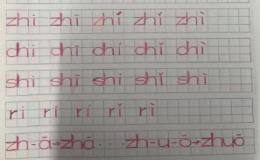 zhi zhī zhí zhǐ zhì
chi chī chí chǐ chì
shi shī shí shǐ shì
ri rī rí rǐ rì
zh-ā→zhā zh-u-ō→zhuō